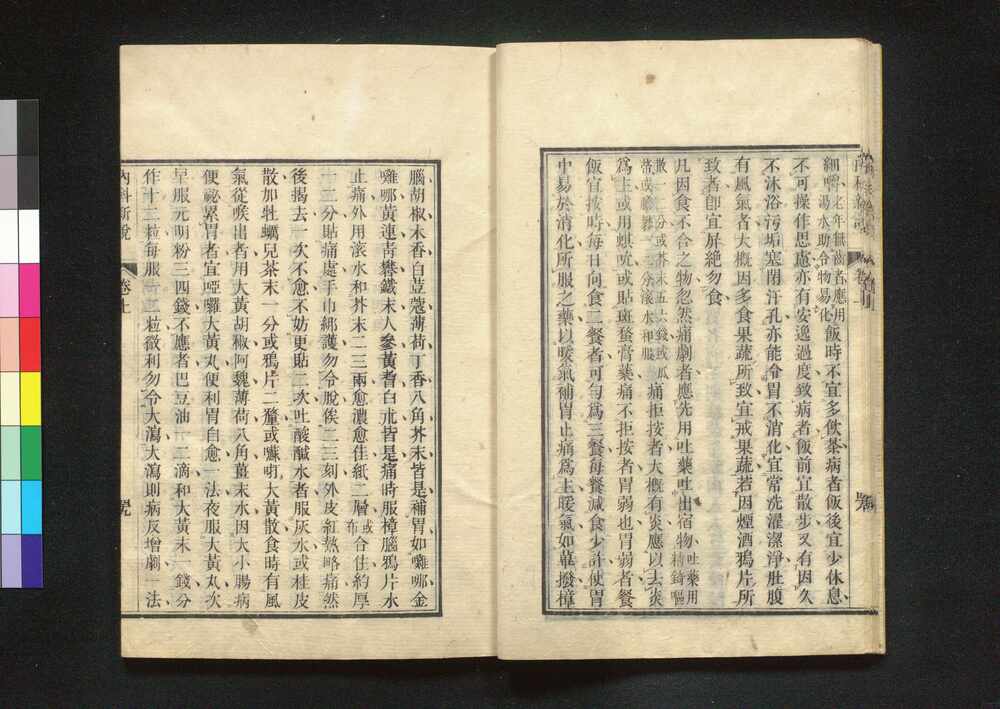 細嚼、老年無齒者應用湯水助令物易化飯時不宜多飲茶病者飯後宜少休息
不可操作思慮亦有安逸過度致病者飯前宜散步又有因久
不沐浴污垢塞閉汗孔亦能令胃不消化宜常洗濯潔淨肚腹
有風氣者大概因多食果蔬所致宜戒果蔬若因煙酒鴉片所
致者卽宜屏絶勿食
凡因食不合之物忽然痛劇者應先用吐藥吐出宿物吐藥用精錡嘔
散一二分或芥末五六錢或瓜蒂或膽礬二三分滚水和服痛拒按者大概有炎應以去炎
爲主或用蜞吮或貼斑蝥膏藥痛不拒按者胃弱也胃弱者餐
飯宜按時每日向食二餐者可勻爲三餐每餐減食少許使胃
中易於消化所服之藥以暖氣補胃止痛爲主暖氣如蓽撥樟
腦胡椒木香白荳蔻薄荷丁香八角芥末皆是補胃如囄哪金
囄哪黃連靑礬鐵末人參黃耆白朮皆是痛時服樟腦鴉片水
止痛外用滚水和芥末二三兩愈濃愈佳紙二層或布合住約厚
一二分貼痛處手巾綁護勿令脫俟二三刻外皮紅熱略痛然
後揭去一次不愈不妨更貼二次吐酸醎水者服灰水或桂皮
散加牡蠣兒茶末一分或鴉片二釐或嚥㕭大黃散食時有風
氣從喉出者用大黃胡椒阿魏薄荷八角薑末水因大小腸病
便祕累胃者宜啞囉大黃丸便利胃自愈一法夜服大黃丸次
早服元明粉三四錢不應者巴豆油一二滴和大黃末一錢分
作十二粒每服一二粒微利勿令大瀉大瀉則病反增劇一法
內科新說 卷上